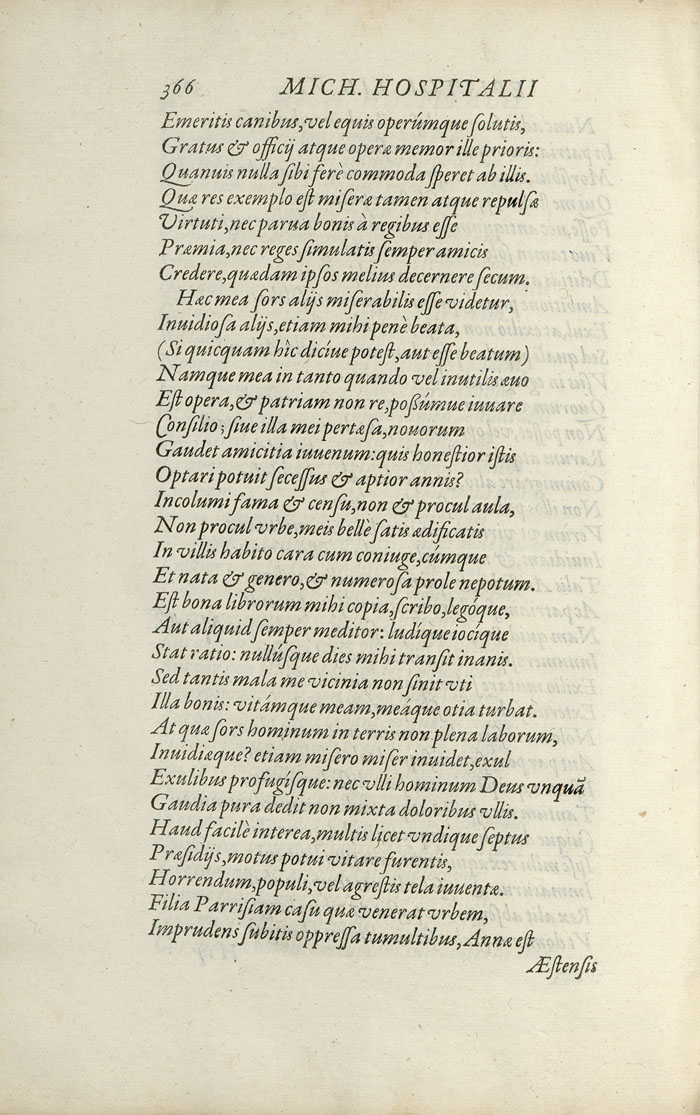 366 MICH. HOSPITALII
Emeritis canibus, vel equis operúmque solutis,
Gratus & officij atque operæ memor ille prioris:
Quanuis nulla sibi ferè commoda speret ab illis.
Quæ res exemplo est miseræ tamen atque repulsæ
Virtuti, nec parua bonis à regibus esse
Præmia, nec reges simulatis semper amicis
Credere, quædam ipsos melius decernere secum.
Hæc mea sors alijs miserabilis esse videtur,
Inuidiosa alijs, etiam mihi penè beata,
(Si quicquam hîc dicíue potest, aut esse beatum)
Namque mea in tanto quando vel inutilis æuo
Est opera, & patriam non re, poßúmue iuuare
Consilio; siue illa mei pertæsa, nouorum
Gaudet amicitia iuuenum: quis honestior istis
Optari potuit secessus & aptior annis?
Incolumi fama & censu, non & procul aula,
Non procul vrbe, meis bellè satis ædificatis
In villis habito cara cum coniuge, cúmque
Et nata & genero, & numerosa prole nepotum.
Est bona librorum mihi copia, scribo, legóque,
Aut aliquid semper meditor: ludíque iocíque
Stat ratio: nullúsque dies mihi transit inanis.
Sed tantis mala me vicinia non sinit vti
Illa bonis: vitámque meam, meáque otia turbat.
At quæ sors hominum in terris non plena laborum,
Inuidiæque? etiam misero miser inuidet, exul
Exulibus profugísque: nec vlli hominum Deus vnquã
Gaudia pura dedit non mixta doloribus vllis.
Haud facilè interea, multis licet vndique septus
Præsidijs, motus potui vitare furentis,
Horrendum, populi, vel agrestis tela iuuentæ.
Filia Parrisiam casu quæ venerat vrbem,
Imprudens subitis oppressa tumultibus, Annæ est
Æstensis